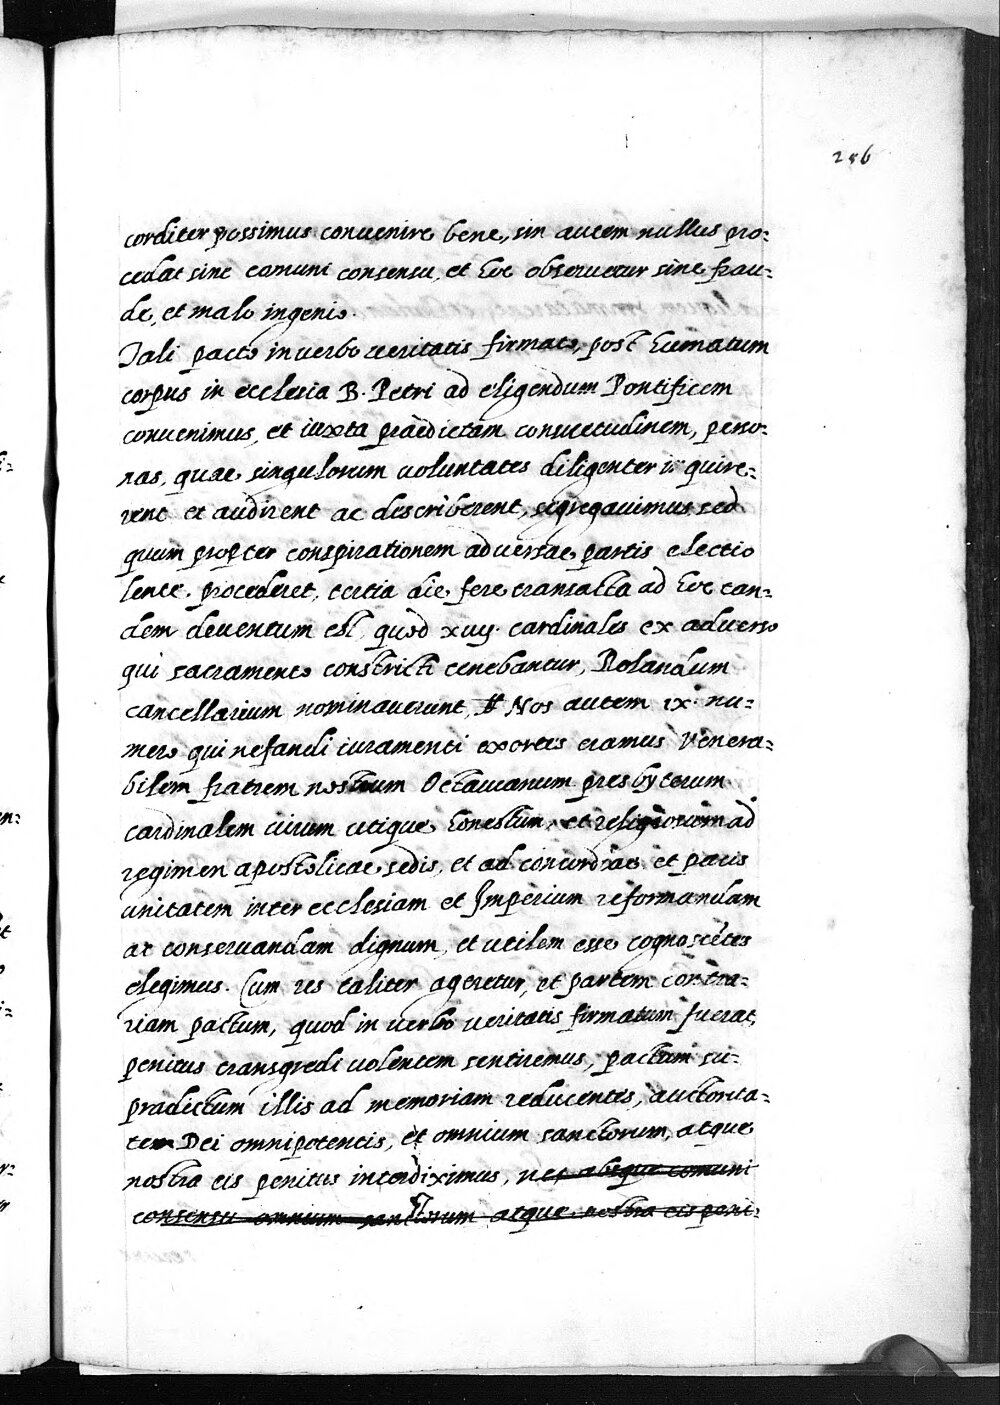 256
corditer possimus conuenire bene, sin autem nullus pro=
cedat sine comuni consensu, et hoc obseruetur sine frau=
de, et malo ingenio.
Tali pacto in uerbo ueritatis firmato, post humatum
corpus in ecclesia B. Petri ad eligendum Pontificem
conuenimus, et iuxta praedictam consuetudinem, perso=
nas, quae singulorum uoluntates diligenter inquire=
rent et audirent ac describerent, segregauimus sed
quum propter conspirationem aduersae partis electio
lente procederet, tertia die fere transacta ad hoc tan=
dem deuentum est, quod xiiij. cardinales ex aduerso
qui sacramento constricti tenebantur, Rolandum
cancellarium nominauerunt, Nos autem ix. nu=
mero qui nefandi iuramenti exortes eramus Venera=
bilem fratrem nostrum Octauianum presbyterum
cardinalem uirum utique honestum, et religiosum ad
regimen apostolicae sedis, et ad concordiae et pacis
unitatem inter ecclesiam et Imperium reformandam
ac conseruandam dignum, et utilem esse cognoscẽtes
elegimus. Cum res taliter ageretur, et partem contra=
riam pactum, quod in uerbo ueritatis firmatum fuerat,
penitus transgredi uolentem sentiremus, pactum su=
pradictum illis ad memoriam reducentes, auctorita=
tem Dei omnipotentis, et omnium sanctorum, atque
nostra eis penitus interdiximus, nec absque comuni
consensu omnium sanctorum atque nostra eis peni=